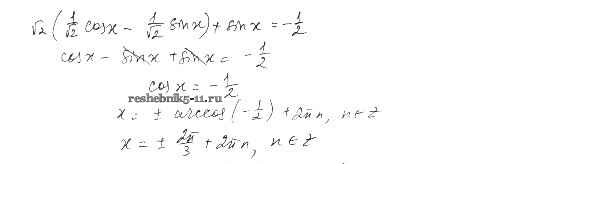 √2 (1/√2 cosx − 1/√2 sinx) + sinx = −1/2
cosx − sinx + sinx = −1/2
cosx = −1/2
reshebnik5-11.ru
x = ± arccos(−1/2) + 2πn, n∈Z
x = ± 2π/3 + 2πn, n∈Z